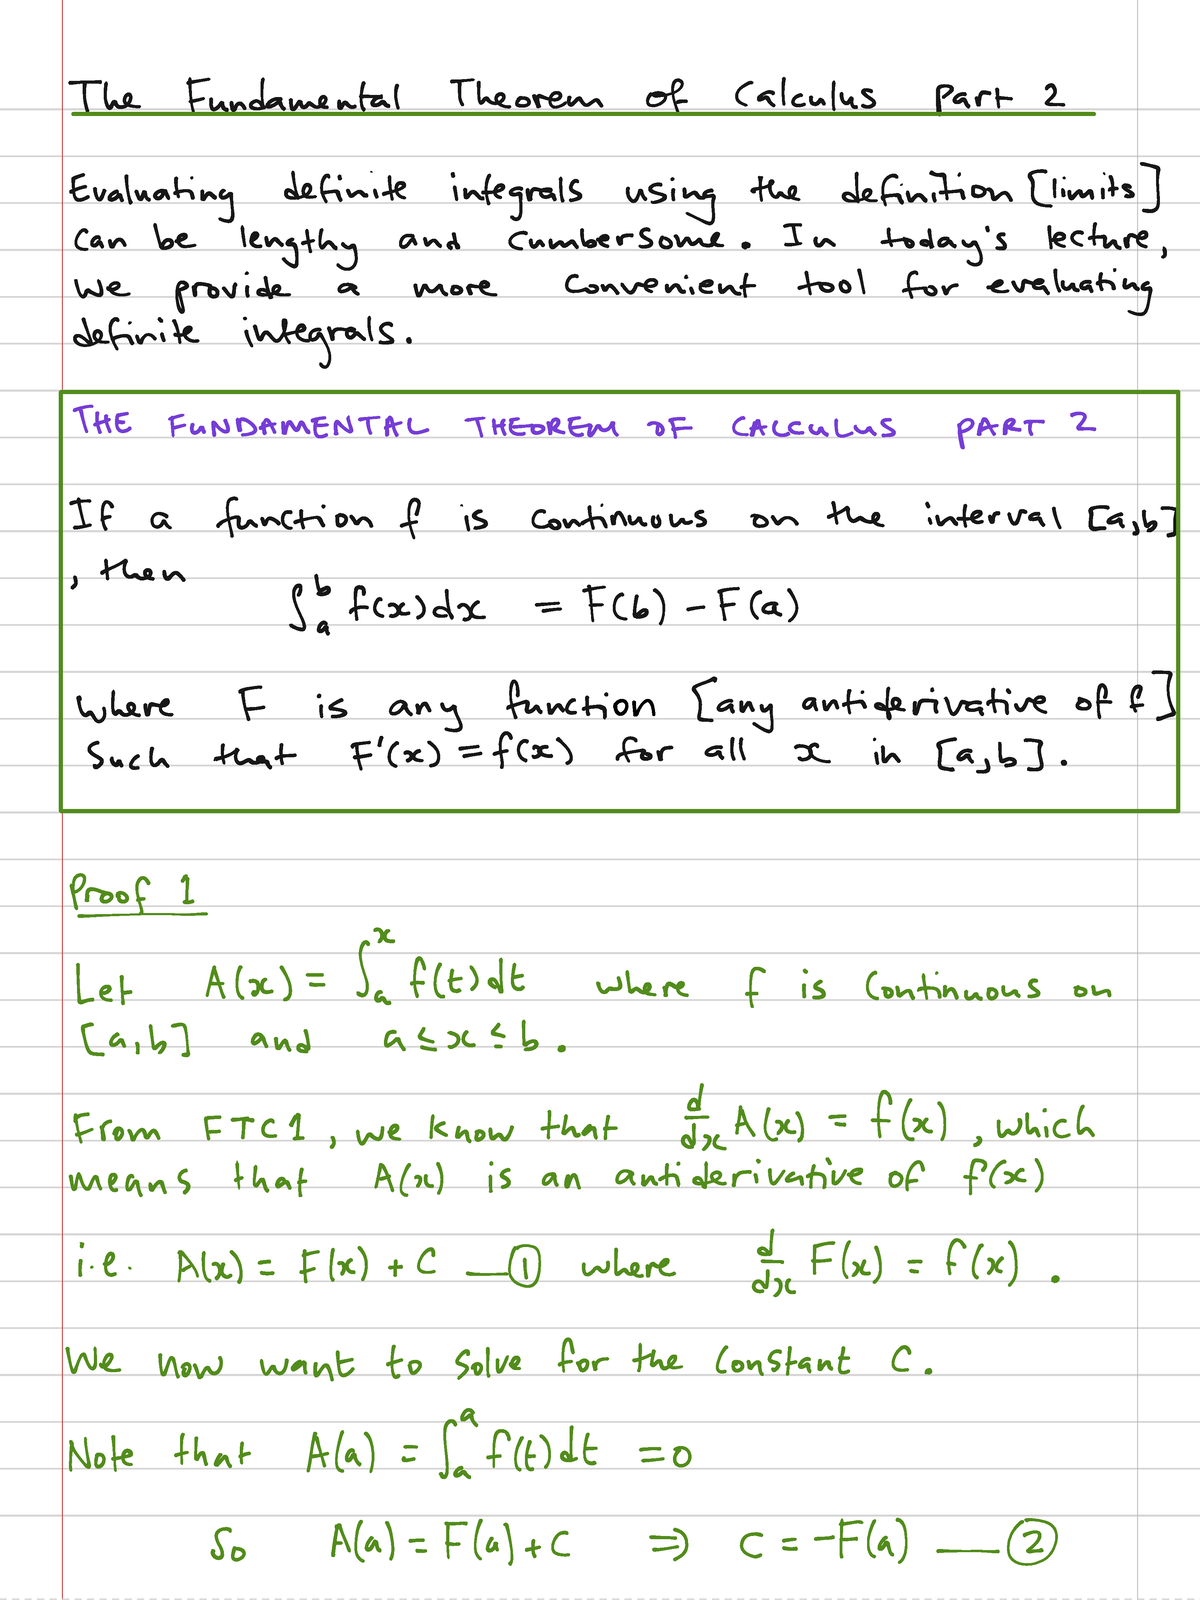 The Fundamental Theorem of Calculus Part 2
Evaluating definite integrals using the definition [limits]
can be lengthy and cumbersome. In today's lecture,
we provide a more convenient tool for evaluating
definite integrals.
THE FUNDAMENTAL THEOREM OF CALCULUS PART 2
If a function f is continuous on the interval [a,b]
, then
∫_a^b f(x)dx = F(b) - F(a)
where F is any function [any antiderivative of f]
such that F'(x) = f(x) for all x in [a,b].
Proof 1
Let A(x) = ∫_a^x f(t)dt where f is continuous on
[a,b] and a ≤ x ≤ b.
From FTC1, we know that d/dx A(x) = f(x), which
means that A(x) is an antiderivative of f(x)
i.e. A(x) = F(x) + C —① where d/dx F(x) = f(x).
We now want to solve for the constant C.
Note that A(a) = ∫_a^a f(t)dt = 0
So A(a) = F(a) + C ⇒ C = -F(a) —②